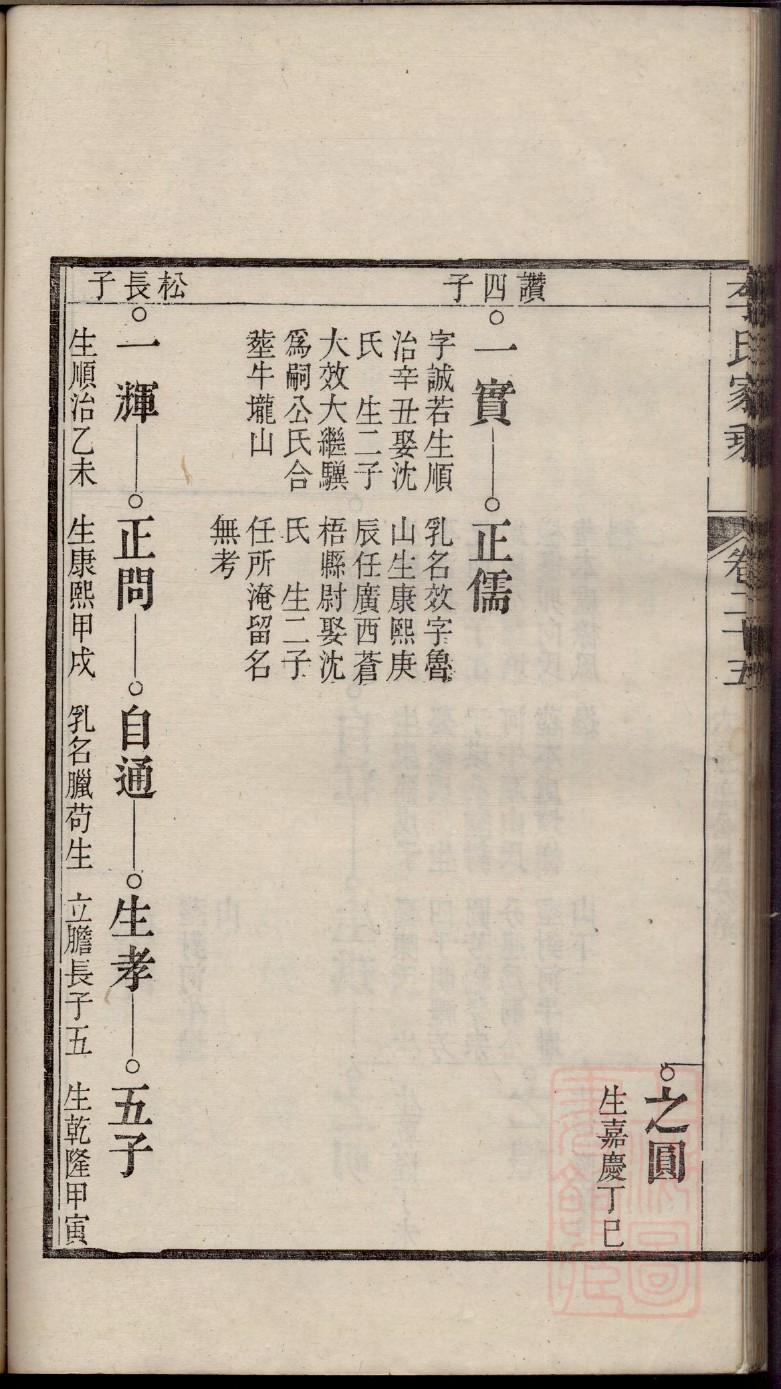 李氏家乘
卷二十五
之圓
生嘉慶丁巳
讚四子
一實
字誠若生順
治辛丑娶沈
氏 生二子
大效大繼驥
爲嗣公氏合
塟牛壠山
正儒
乳名效字魯
山生康熙庚
辰任廣西蒼
梧縣尉娶沈
氏 生二子
任所淹留名
無考
松長子
一輝
生順治乙未
正問
生康熙甲戌
自通
乳名臘苟生
生孝
立膽長子五
五子
生乾隆甲寅